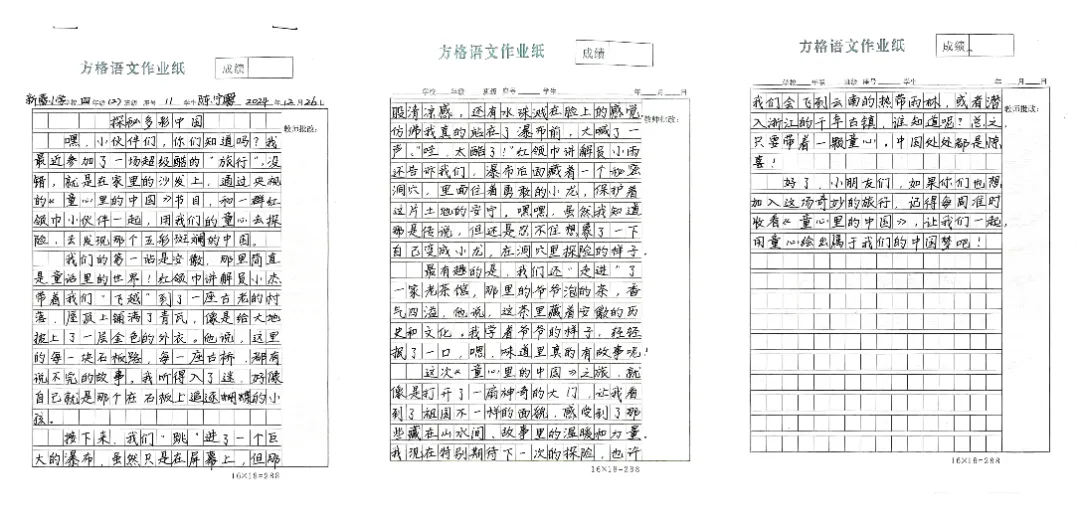 方格语文作业纸
成绩
新 小学 学校 四 年级 (2) 班级 座号 11 学生 陈 2024 年 12 月 26 日
教师批改:
探秘多彩中国
嘿,小伙伴们,你们知道吗?我
最近参加了一场超级酷的“旅行”,没
错,就是在家里的沙发上,通过央视
的《童心里的中国》节目,和一群红
领巾小伙伴一起,用我们的童心去探
险,去发现那个五彩斑斓的中国。
我们的第一站是安徽,那里简直
是童话里的世界!红领巾讲解员小杰
带着我们“飞越”到了一座古老的村
落,屋顶上铺满了青瓦,像是给大地
披上了一层金色的外衣。他说,这里
的每一块石板路,每一座古桥,都有
说不完的故事,我听得入了迷,好像
自己就是那个在石板上追逐蝴蝶的小
孩。
接下来,我们“跳”进了一个巨
大的瀑布,虽然只是在屏幕上,但那
16×18=288
方格语文作业纸
成绩
学校 年级 班级 座号 学生 年 月 日
教师批改:
股清凉感,还有水珠溅在脸上的感觉
仿佛我真的站在了瀑布前,大喊了一
声:“哇,太酷了!”红领巾讲解员小雨
还告诉我们,瀑布后面藏着一个秘密
洞穴,里面住着勇敢的小龙,保护着
这片土地的安宁,嘿嘿,虽然我知道
那是传说,但还是忍不住想象了一下
自己变成小龙,在洞穴里探险的样子。
最有趣的是,我们还“走进”了
一家老茶馆,那里的爷爷泡的茶,香
气四溢,他说,这茶里藏着安徽的历
史和文化。我学着爷爷的样子,轻轻
抿了一口,嗯,味道里真的有故事呢!
这次《童心里的中国》之旅,就
像是打开了一扇神奇的大门,让我看
到了祖国不一样的面貌,感受到了那
些藏在山水间、故事里的温暖和力量。
我现在特别期待下一次的探险,也许
16×18=288
方格语文作业纸
成绩
学校 年级 班级 座号 学生 年 月 日
教师批改:
我们会飞到云南的热带雨林,或者潜
入浙江的千年古镇,谁知道呢?总之,
只要带着一颗童心,中国处处都是惊
喜!
好了,小朋友们,如果你们也想
加入这场奇妙的旅行,记得每周准时
收看《童心里的中国》,让我们一起,
用童心绘出属于我们的中国梦吧!
16×18=288